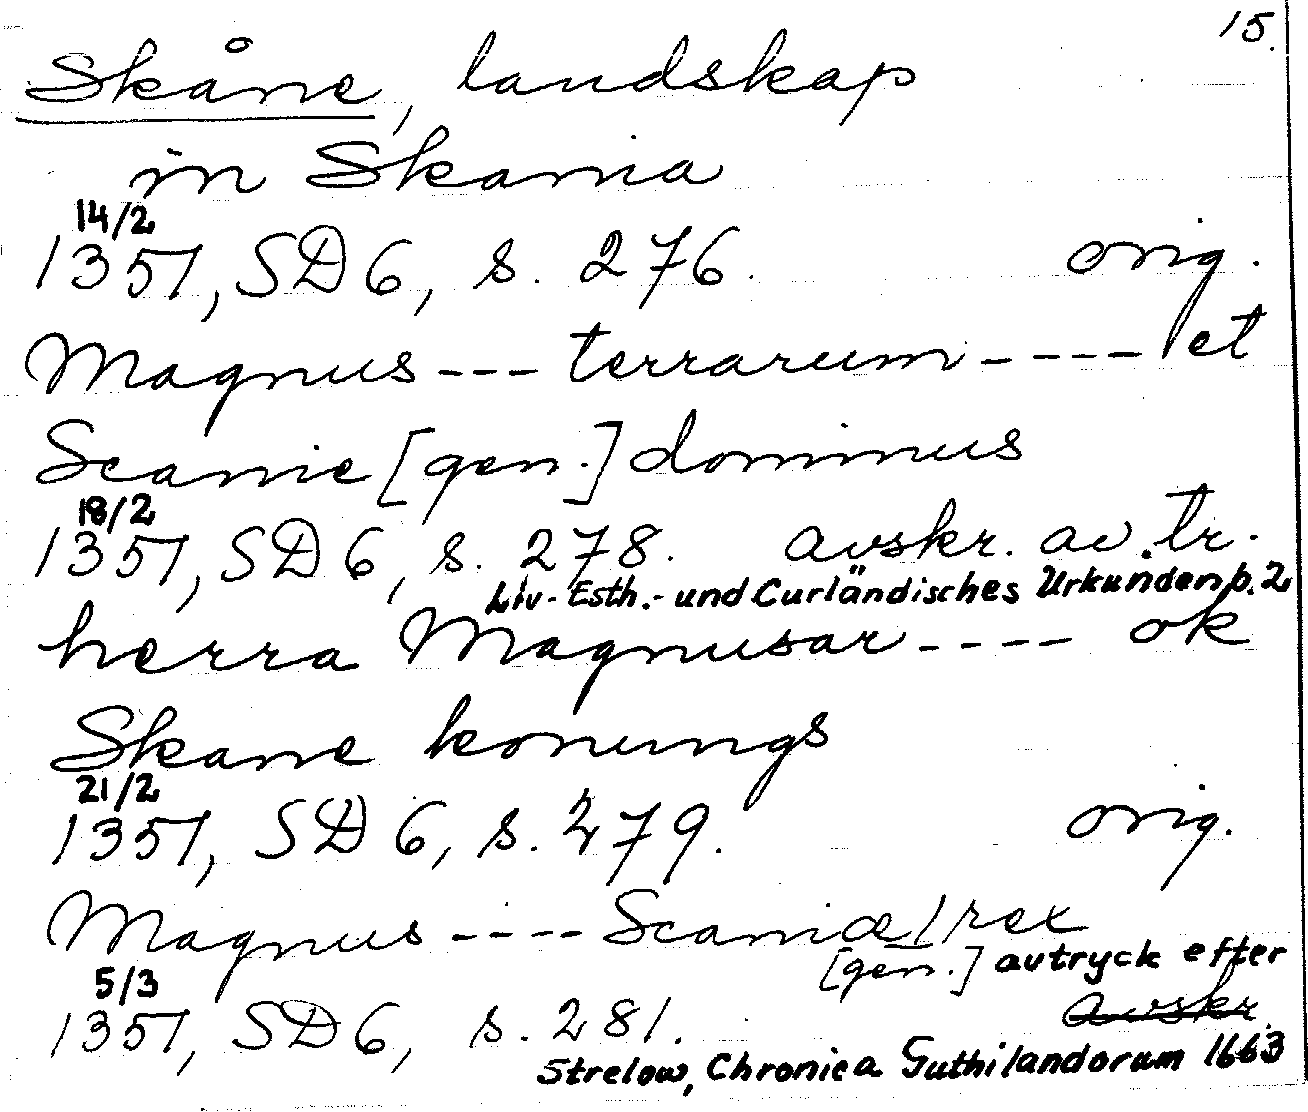 15.
Skåne, landskap
in Skania
14/2
1351, SD 6, s. 276. orig.
Magnus --- terrarum ---- et
Scanie [gen.] dominus
18/2
1351, SD 6, s. 278. avskr. av tr.
Liv- Esth.- und Curländisches Urkundenb. 2
herra Magnusar ---- ok
Skane konungs
21/2
1351, SD 6, s. 279. orig.
Magnus ---- Scaniæ / rex
[gen.] avtryck efter
5/3
1351, SD 6, s. 281. avskr.
Strelow, Chronica Guthilandorum 1663